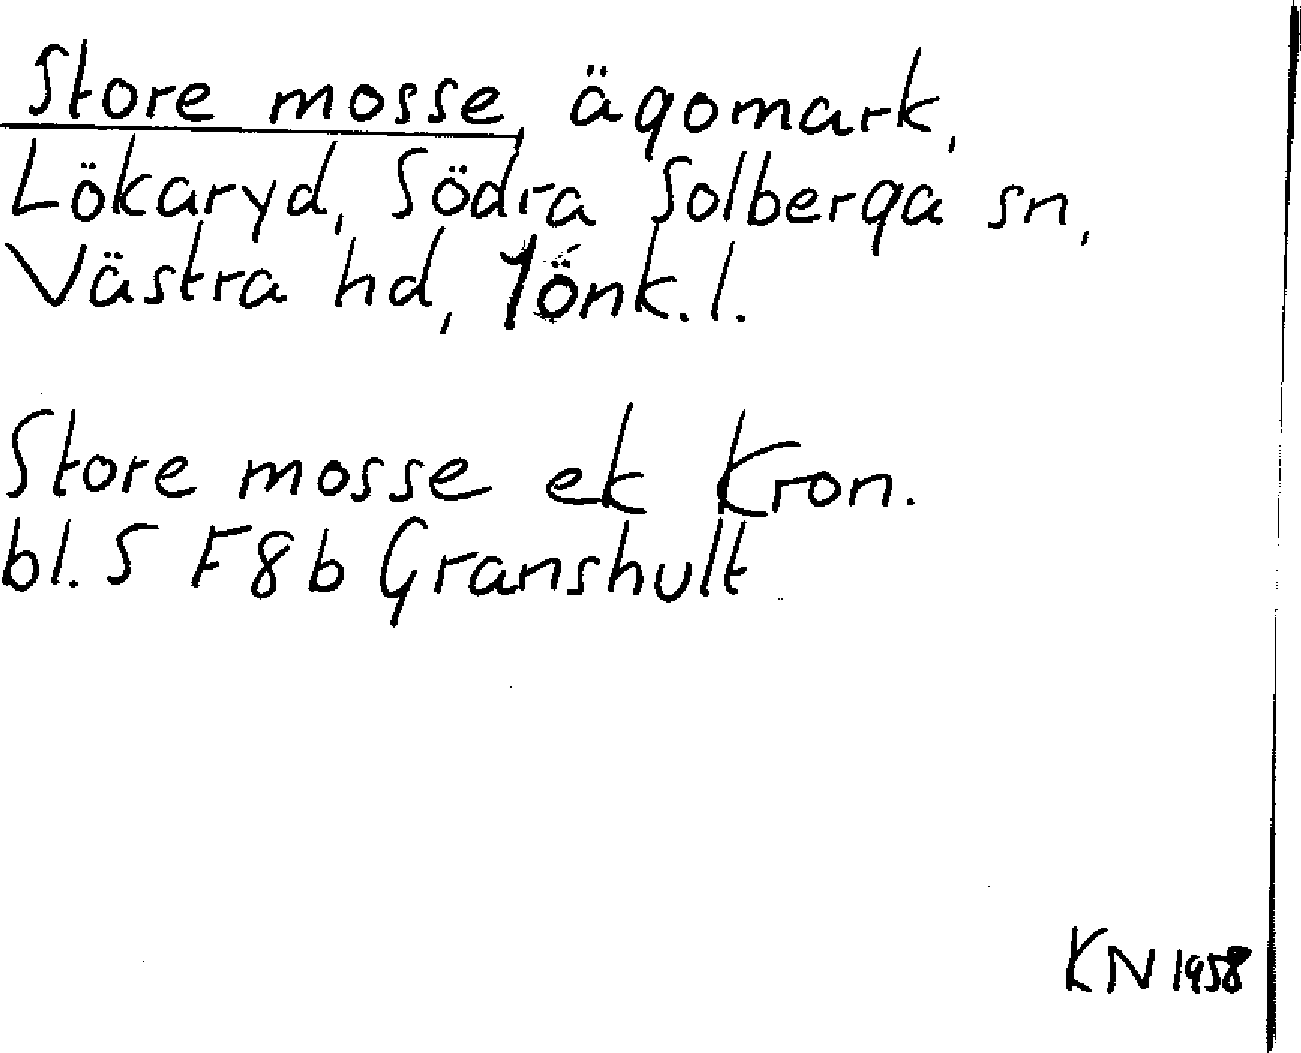 Store mosse, ägomark,
Lökaryd, Södra Solberga sn,
Västra hd, Jönk. l.
Store mosse ek Kron.
bl. 5 F8b Granshult
KN 1958